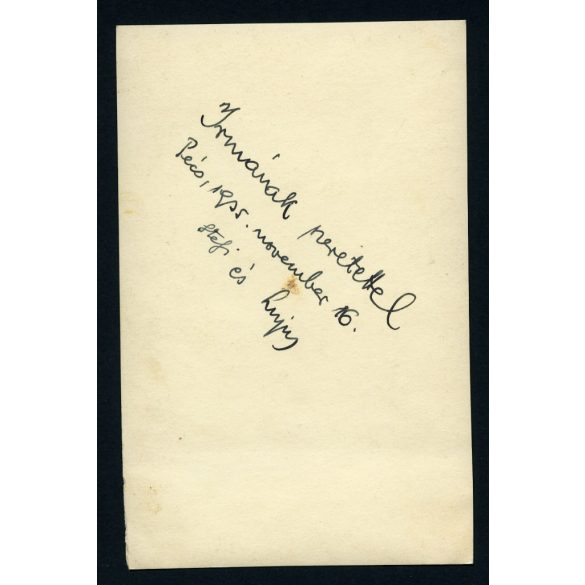 Irmának szeretettel
Pécs, 1935. november 16.
Stefi és Lajos